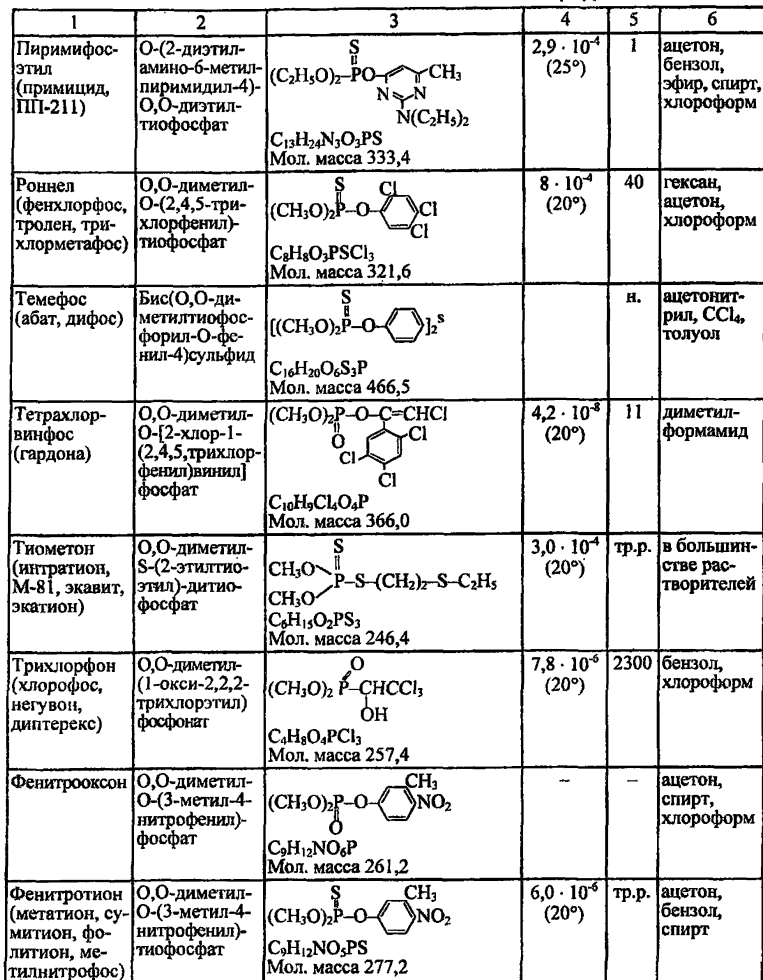 1 2 3 4 5 6
Пиримифос-
этил
(примицид,
ПП-211)
О-(2-диэтил-
амино-6-метил-
пиримидил-4)-
О,О-диэтил-
тиофосфат
S
(C₂H₅O)₂–P–O– CH₃
N N
N(C₂H₅)₂
C₁₃H₂₄N₃O₃PS
Мол. масса 333,4
2,9 · 10⁻⁴
(25°)
1
ацетон,
бензол,
эфир, спирт,
хлороформ
Роннел
(фенхлорфос,
тролен, три-
хлорметафос)
О,О-диметил-
О-(2,4,5-три-
хлорфенил)-
тиофосфат
S
(CH₃O)₂P–O– Cl
Cl
Cl
C₈H₈O₃PSCl₃
Мол. масса 321,6
8 · 10⁻⁴
(20°)
40
гексан,
ацетон,
хлороформ
Темефос
(абат, дифос)
Бис(О,О-ди-
метилтиофос-
форил-О-фе-
нил-4)сульфид
S
[(CH₃O)₂P–O– ]₂S
C₁₆H₂₀O₆S₃P
Мол. масса 466,5
н.
ацетонит-
рил, CCl₄,
толуол
Тетрахлор-
винфос
(гардона)
О,О-диметил-
О-[2-хлор-1-
(2,4,5,трихлор-
фенил)винил]
фосфат
(CH₃O)₂P–O–C=CHCl
O Cl
Cl
Cl
C₁₀H₉Cl₄O₄P
Мол. масса 366,0
4,2 · 10⁻⁸
(20°)
11
диметил-
формамид
Тиометон
(интратион,
М-81, экавит,
экатион)
О,О-диметил-
S-(2-этилтио-
этил)-дитио-
фосфат
S
CH₃O
P–S–(CH₂)₂–S–C₂H₅
CH₃O
C₆H₁₅O₂PS₃
Мол. масса 246,4
3,0 · 10⁻⁴
(20°)
тр.р.
в большин-
стве рас-
творителей
Трихлорфон
(хлорофос,
негувон,
диптерекс)
О,О-диметил-
(1-окси-2,2,2-
трихлорэтил)
фосфонат
O
(CH₃O)₂ P–CHCCl₃
OH
C₄H₈O₄PCl₃
Мол. масса 257,4
7,8 · 10⁻⁶
(20°)
2300
бензол,
хлороформ
Фенитрооксон
О,О-диметил-
О-(3-метил-4-
нитрофенил)-
фосфат
CH₃
(CH₃O)₂P–O– NO₂
O
C₉H₁₂NO₆P
Мол. масса 261,2
–
–
ацетон,
спирт,
хлороформ
Фенитротион
(метатион, су-
митион, фо-
литион, ме-
тилнитрофос)
О,О-диметил-
О-(3-метил-4-
нитрофенил)-
тиофосфат
S CH₃
(CH₃O)₂P–O– NO₂
C₉H₁₂NO₅PS
Мол. масса 277,2
6,0 · 10⁻⁶
(20°)
тр.р.
ацетон,
бензол,
спирт